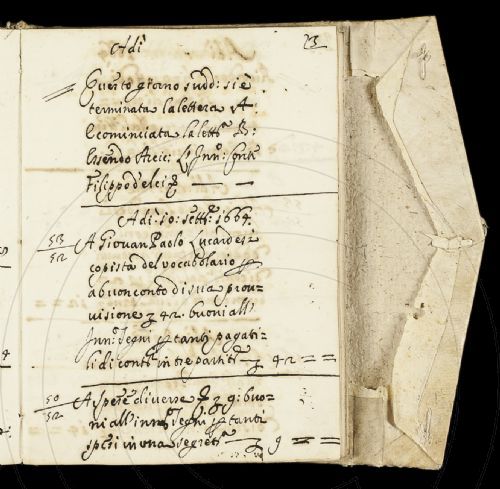 23
Adì
Questo giorno sudd: si è
terminata la lettera A
e cominciata la lettª B:
Essendo Arcic: l'Inno:
Filippo d'elci
Adi: 10: settᵉ: 1664
53
52
A Giovan Paolo Lucardesi
copista del vocabolario
a buon conto di sua prov-
visione 42. buoni all'
Innº. Segni p tanti pagati-
li di conti in tre partite 42 = =
50
52
A spese diverse 9: buo-
ni all'innº Segni p tanti
spesi in una segretª 9 = =